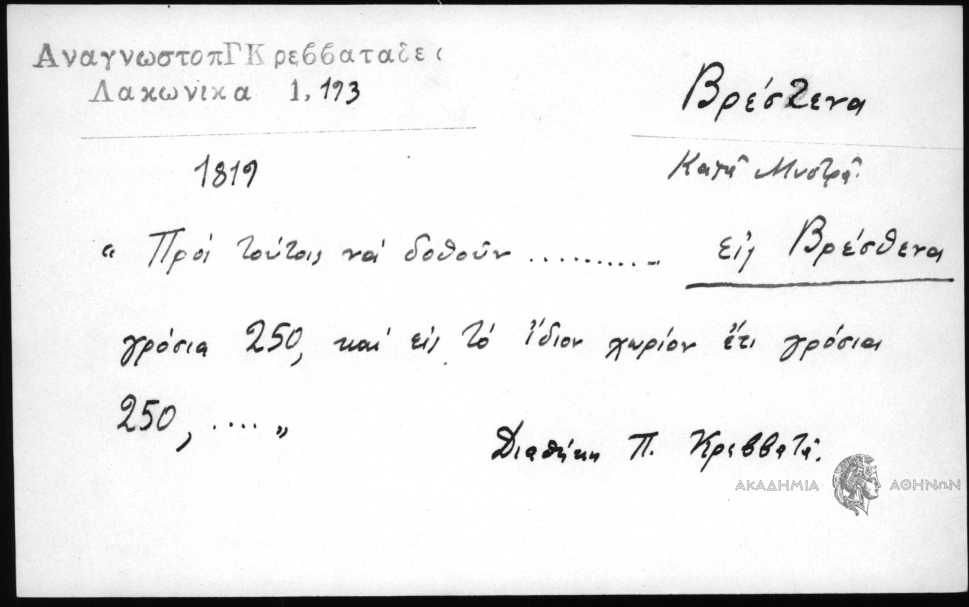 ΑναγνωστοπΓΚρεββαταδες
Λακωνικα 1, 193
Βρέσθενα
1819
Κατὰ Μυστρᾶ.
“ Πρὸς τούτοις νά δοθοῦν ........... εἰς Βρέσθενα
γρόσια 250, καί εἰς τό ἴδιον χωρίον ἔτι γρόσια
250, .... „
Διαθήκη Π. Κρεββατᾶ.
ΑΚΑΔΗΜΙΑ ΑΘΗΝΩΝ